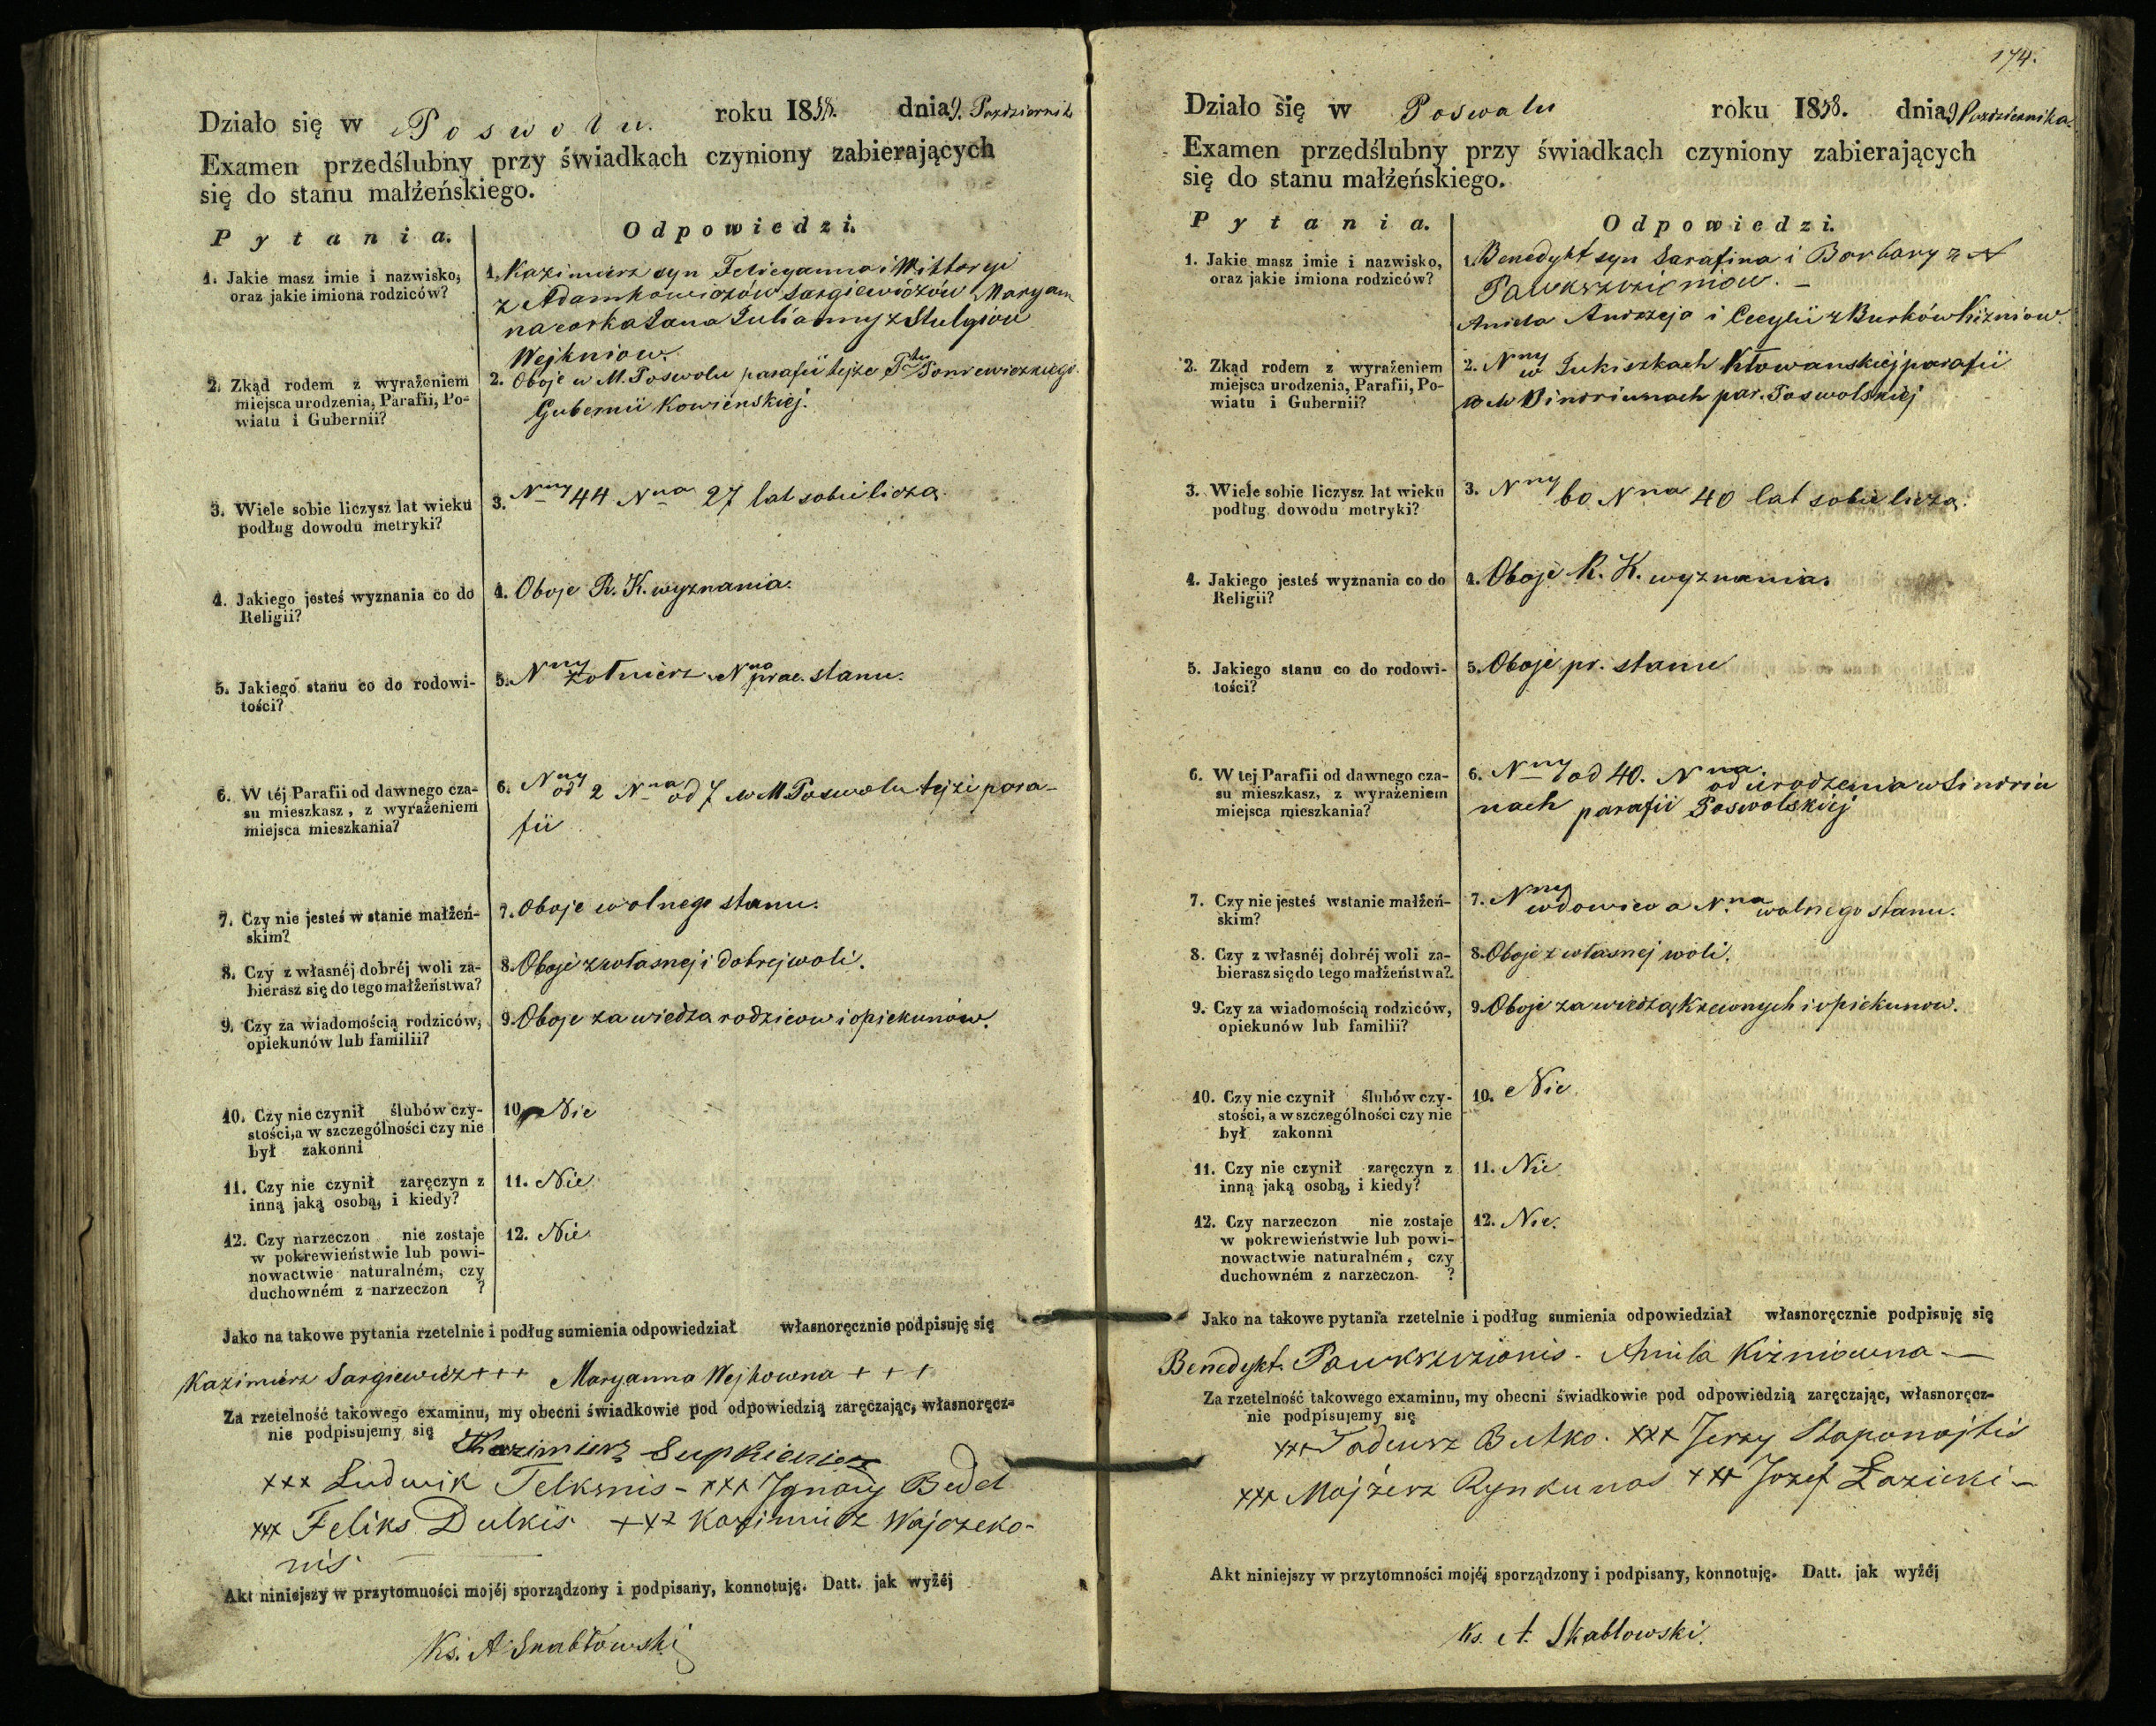 Działo się w Poswolu. roku 1858. dnia 9. Października
Examen przedślubny przy świadkach czyniony zabierających
się do stanu małżeńskiego.
Pytania.
Odpowiedzi.
1. Jakie masz imie i nazwisko,
oraz jakie imiona rodziców?
1. Kazimierz syn Felicyanna i Wiktoryi
z Adamkowiczów Sargiewiczów Maryan
na corka Jana Julianny z Stulgiow
Wejkniow.
2. Zkąd rodem z wyrażeniem
miejsca urodzenia, Parafii, Po-
wiatu i Gubernii?
2. Oboje w M. Poswolu parafii tejże Ptu Poniewiezkiego
Gubernii Kowieńskiej.
3. Wiele sobie liczysz lat wieku
podług dowodu metryki?
3. Nny 44 Nna 27 lat sobie liczą.
4. Jakiego jesteś wyznania co do
Religii?
4. Oboje R. K. wyznania.
5. Jakiego stanu co do rodowi-
tości?
5. Nny żołnierz Nna prac. stanu.
6. W téj Parafii od dawnego cza-
su mieszkasz, z wyrażeniem
miejsca mieszkania?
6. Nny od 2 Nna od 7 w M Poswolu tejże para-
fii
7. Czy nie jesteś w stanie małżeń-
skim?
7. Oboje wolnego stanu.
8. Czy z własnéj dobréj woli za-
bierasz się do tego małżeństwa?
8. Oboje z własnej i dobrej woli.
9. Czy za wiadomością rodziców,
opiekunów lub familii?
9. Oboje za wiedza rodzicow i opiekunów.
10. Czy nie czynił ślubów czy-
stości, a w szczególności czy nie
był zakonni
10. Nie
11. Czy nie czynił zaręczyn z
inną jaką osobą, i kiedy?
11. Nie
12. Czy narzeczon nie zostaje
w pokrewieństwie lub powi-
nowactwie naturalném, czy
duchowném z narzeczon ?
12. Nie
Jako na takowe pytania rzetelnie i podług sumienia odpowiedział własnoręcznie podpisuję się
Kazimierz Sargiewicz +++ Maryanna Wejkowna + + +
Za rzetelność takowego examinu, my obecni świadkowie pod odpowiedzią zaręczając, własnoręcz-
nie podpisujemy się Kazimierz Supkiewicz
xxx Ludwik Telksnis - xxx Ignacy Bedel
xxx Feliks Dulkis xxx Kazimierz Wajczeko-
nis
Akt niniejszy w przytomności mojéj sporządzony i podpisany, konnotuję. Datt. jak wyżéj
Ks. A Skabłowski
174.
Działo się w Poswolu roku 1858. dnia 9 Października
Examen przedślubny przy świadkach czyniony zabierających
się do stanu małżeńskiego.
Pytania.
Odpowiedzi.
1. Jakie masz imie i nazwisko,
oraz jakie imiona rodziców?
1. Benedykt syn Sarafina i Barbary z N
Paukszcióniow.
Aniela Andrzeja i Cecylii z Burków Kizniow.
2. Zkąd rodem z wyrażeniem
miejsca urodzenia, Parafii, Po-
wiatu i Gubernii?
2. Nny w Jukiszkach Kłowanskiej parafii
w Sindriunach par. Poswolskiej
3. Wiele sobie liczysz lat wieku
podług dowodu metryki?
3. Nny 60 Nna 40 lat sobie liczą.
4. Jakiego jesteś wyznania co do
Religii?
4. Oboje R. K. wyznania.
5. Jakiego stanu co do rodowi-
tości?
5. Oboje pr. stanu
6. W tej Parafii od dawnego cza-
su mieszkasz, z wyrażeniem
miejsca mieszkania?
6. Nny od 40. Nna od urodzenia w Sindriu
nach parafii Poswolskiej
7. Czy nie jesteś wstanie małżeń-
skim?
7. Nny wdowiec a Nna wolnego stanu.
8. Czy z własnéj dobréj woli za-
bierasz się do tego małżeństwa?
8. Oboje z własnej woli.
9. Czy za wiadomością rodziców,
opiekunów lub familii?
9. Oboje za wiedzą Krewnych i opiekunow.
10. Czy nie czynił ślubów czy-
stości, a w szczególności czy nie
był zakonni
10. Nie
11. Czy nie czynił zaręczyn z
inną jaką osobą, i kiedy?
11. Nie
12. Czy narzeczon nie zostaje
w pokrewieństwie lub powi-
nowactwie naturalném, czy
duchowném z narzeczon. ?
12. Nie.
Jako na takowe pytania rzetelnie i podług sumienia odpowiedział własnoręcznie podpisuję się
Benedykt Paukszcionis - Aniela Kizniowna -
Za rzetelność takowego examinu, my obecni świadkowie pod odpowiedzią zaręczając, własnoręcz-
nie podpisujemy się
xxx Tadeusz Butko. xxx Jerzy Staponajtis
xxx Mojżesz Rynkunas xxx Jozef Łazicki -
Akt niniejszy w przytomności mojéj sporządzony i podpisany, konnotuję. Datt. jak wyżéj
Ks. A. Skabłowski.